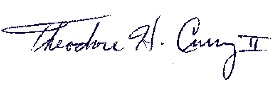 Theodore H. Curry II